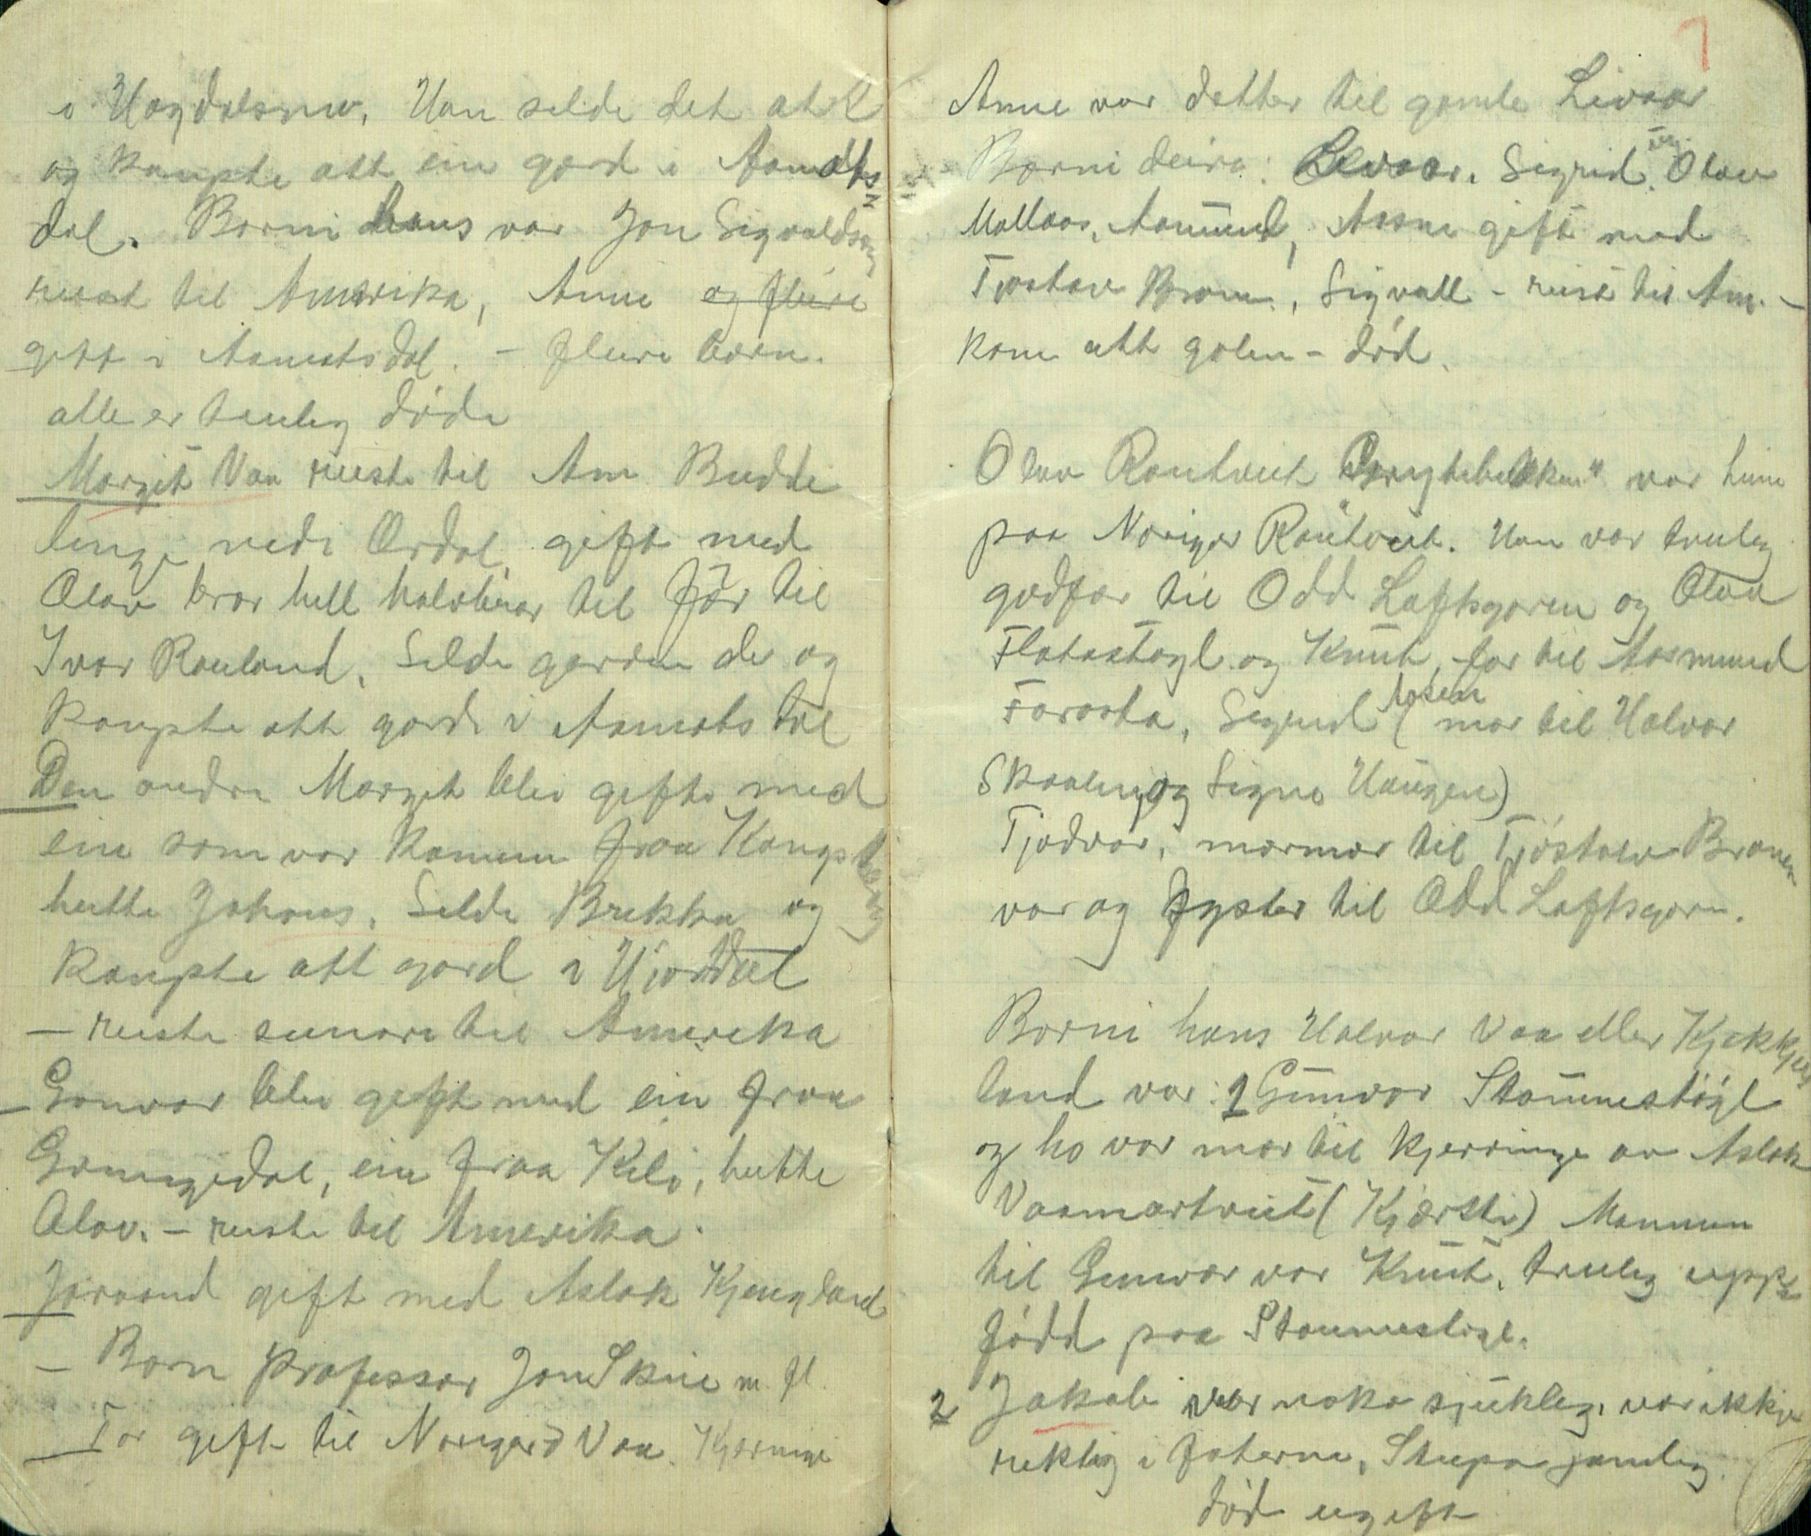 i Hogdalsnu. Han selde det att
og kaupte att ein gard i Aamots
dal. Borni hans var Jon Sigvaldson
reist til Amerika, Anne og fleire
gift i Aamotsdal. - fleire born.
alle er truleg døde
Margit Vaa reiste til Am Budde
lenge nedi Ørdal, gift med
Olav bror hell halvbror til får til
Ivar Rauland, Selde garden der og
kaupte att gard i Aamotsdal
Den andre Margit blei gift med
ein som var komen fraa Kongsberg
hette Johans. Selde Brekka og
kaupte att gard i Hjordal
- reiste seinare til Amerika
Gonvor blei gift med ein fraa
Gransgedal, ein fraa Kili, hette
Olav. - reiste til Amerika.
Joraand gift med Aslak Kjengland
- Born professor Jon Skeie m fl.
Tor gift til Norigard Vaa. Kjerringi
7
Anne var dotter til gamle Livaar
Borni deira: Livaar. Sigrid, Olav
Mallaas, Aamund, Aasne gift med
Tjostav Broune, Sigvall - reist til Am. -
kom att galen - død.
Olav Rautveit "Prygtebekken" var heime
paa Noriger Rautveit. Han var truleg
godfar til Odd Loftsgaren og Olav
Flatastøyl og Knut, far til Aasmund
Farasta, Sigrid (mor til Halvor
Skaalen og Signe Haugen)
Tjodvor, mormor til Tjøstolv Brauen
var og syster til Odd Loftsgarn.
Borni hans Halvor Vaa eller Kjekkje
land var: 1 Gunvor Staumestøyl
og ho var mor til kjerringe av Aslak
Vaamartveit (Kjersti) Mannen
til Gunvor var Knut, truleg upp
fødd paa Staumestøyl.
2 Jakob var noko sjukleg, var ikkje
rektig i føterne, Stupa jamleg
død ugift